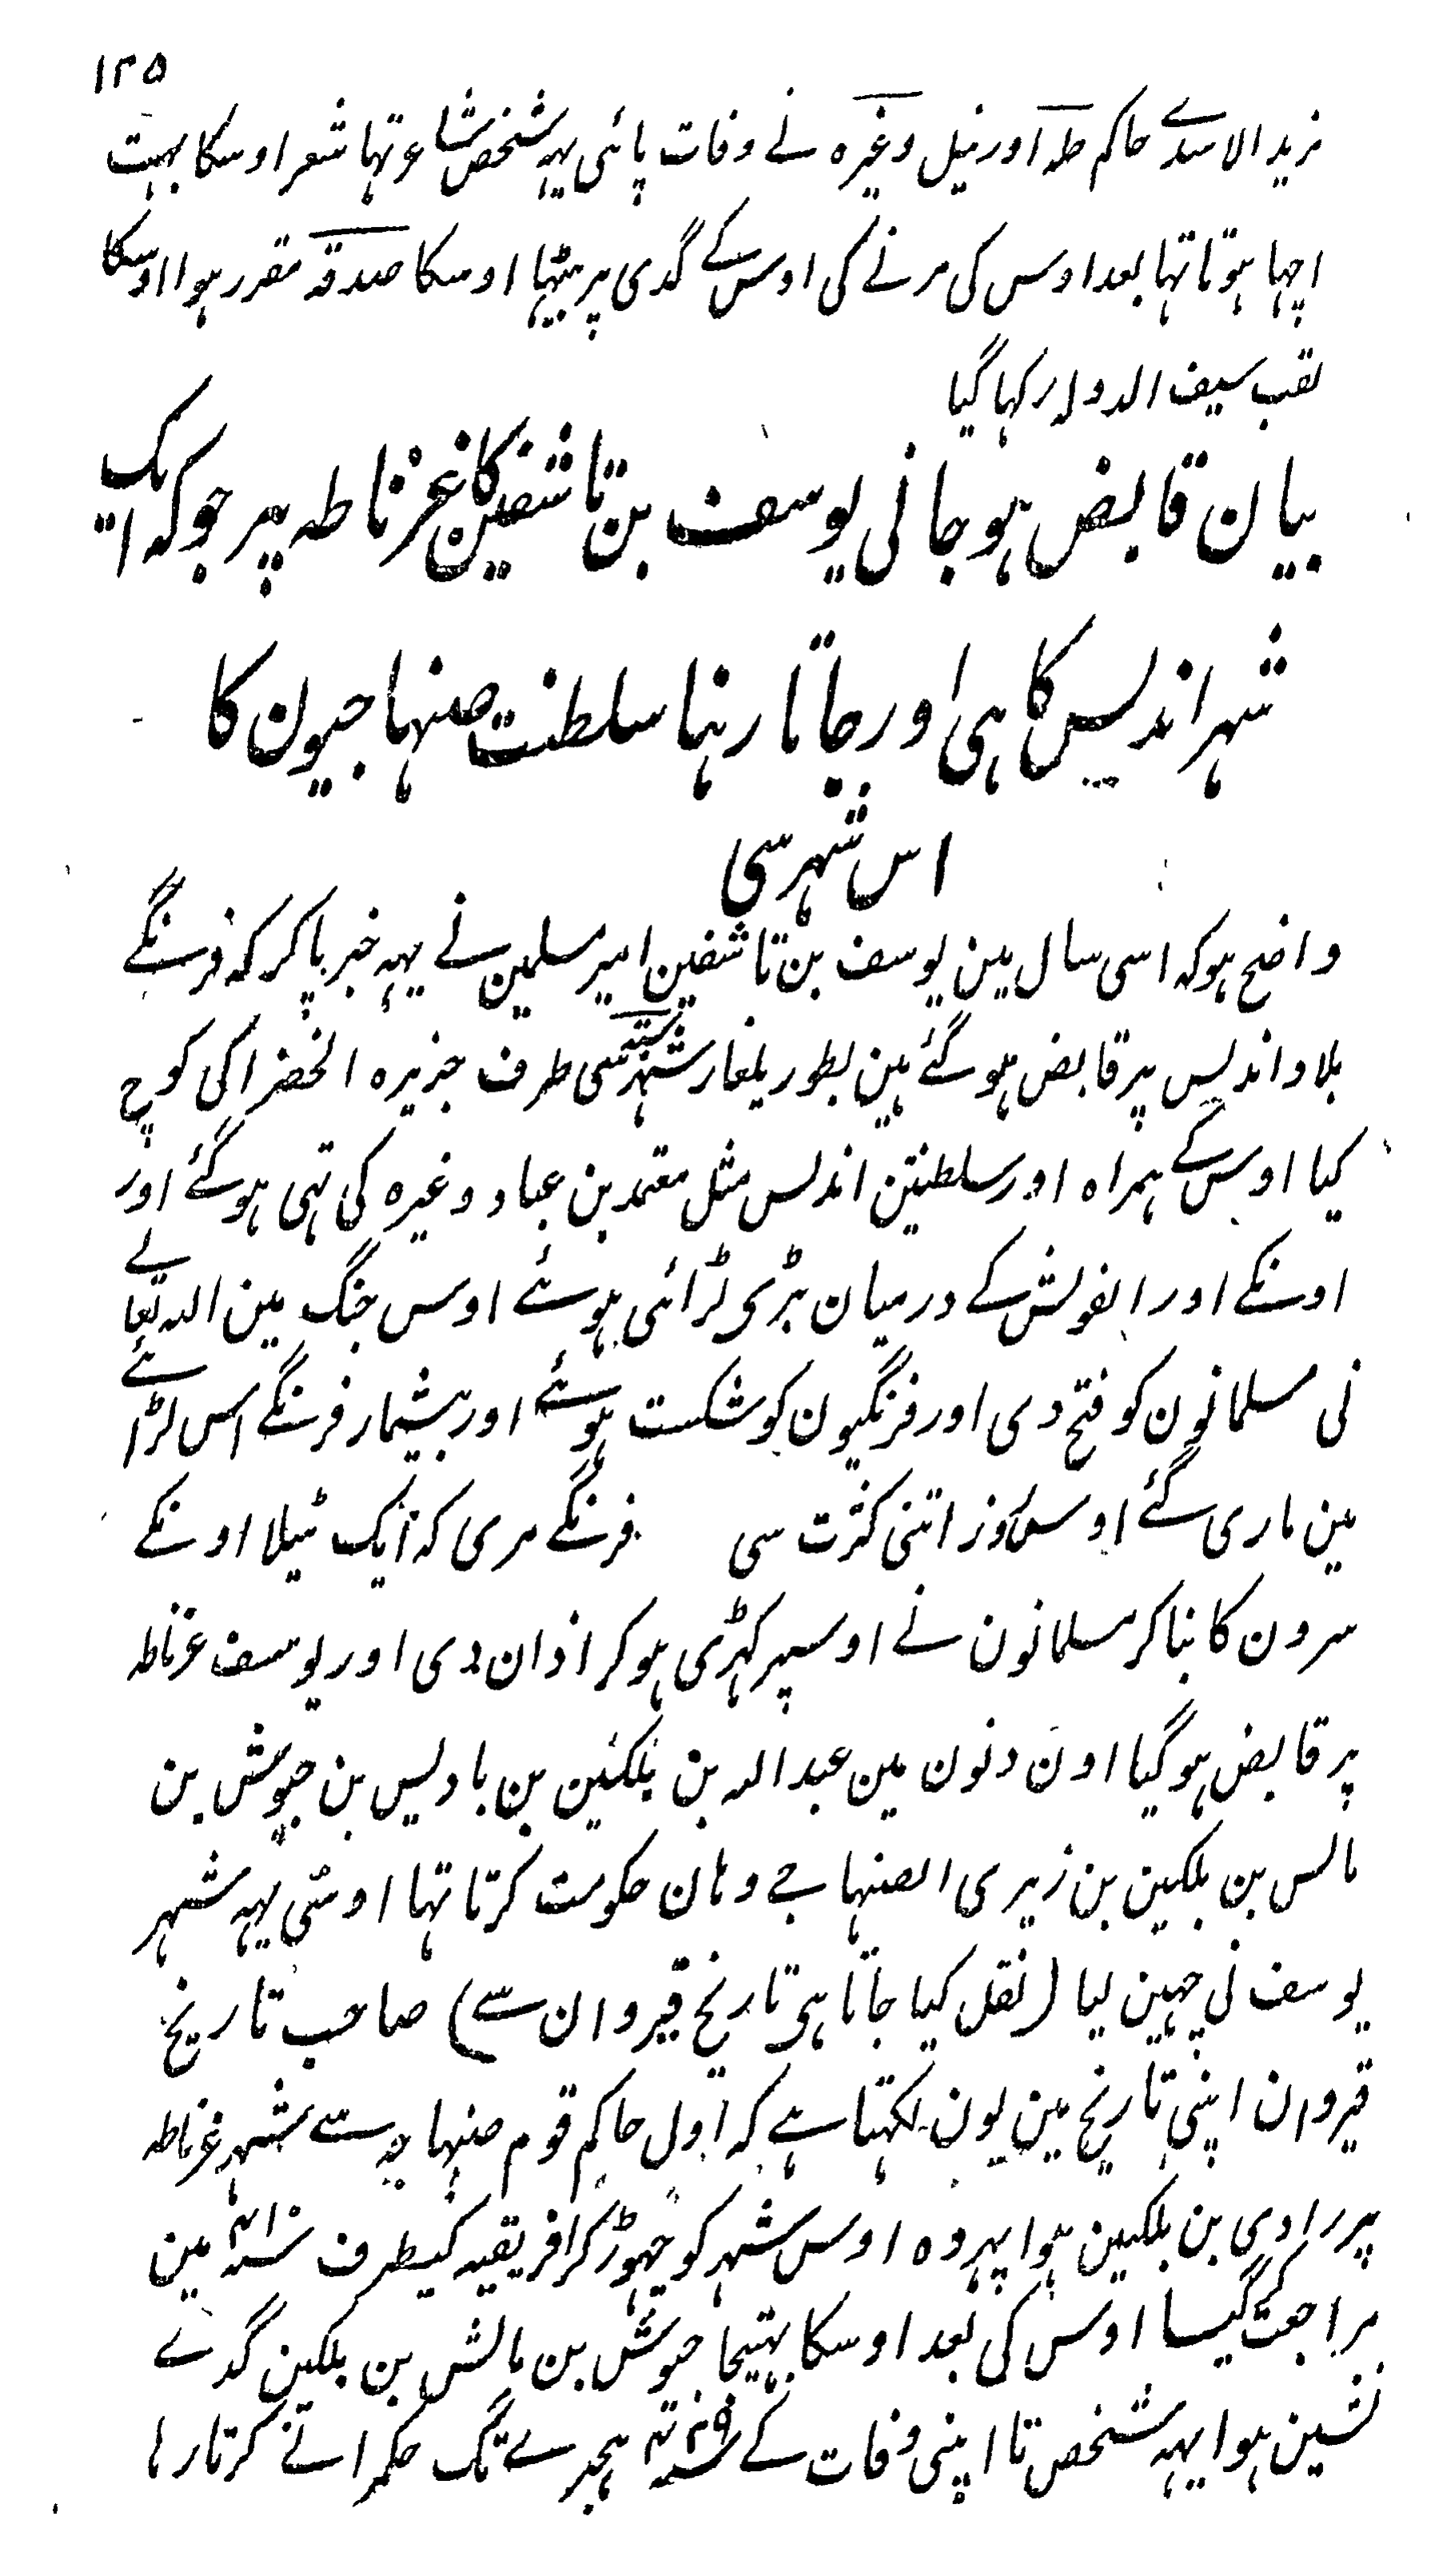 ۱۲۵
مزید الاسدے حاکم حلہ اور نیل وغیرہ نے وفات پائی یہہ شخص شاعر تہا شعر اوسکا بہت
اچہا ہوتا تہا بعد اوس کی مرنے کی اوس کے گدی پر بیٹہا اوسکا صدقہ مقرر ہوا اوسکا
لقب سیف الدولہ رکہا گیا
بیان قابض ہو جانی یوسف بن تاشفین کا غرناطہ پر جو کہ ایک
شہر اندلس کا ہی اور جاتا رہنا سلطنت صنہاجیون کا
اس شہر سی
واضح ہو کہ اسی سال مین یوسف بن تاشفین امیر مسلمین نے یہہ خبر پا کر کہ فرنگے
بلاد اندلس پر قابض ہو گئے ہین بطور یلغار شہر سبتہ سی طرف جزیرہ الخضرا کی کوچ
کیا اوس کے ہمراہ اور سلطنتین اندلس مثل معتمد بن عباد وغیرہ کی تہی ہو گئے اور
اونکے اور الفونش کے درمیان بڑی لڑائی ہوئے اوس جنگ مین اللہ تعالے
نی مسلمانون کو فتح دی اور فرنگیون کو شکست ہوئے اور بیشمار فرنگے اس لڑائے
مین ماری گئے اوس روز اتنی کثرت سی فرنگے مری کہ ایک ٹیلا اونکے
سرون کا بنا کر مسلمانون نے اوسپر کہڑی ہو کر اذان دی اور یوسف غرناطہ
پر قابض ہو گیا اون دنون مین عبد اللہ بن بلکین بن بادیس بن حبوش بن
مالس بن بلکین بن زیری الصنہاجے وہان حکومت کرتا تہا اوسی یہہ شہر
یوسف نی چہین لیا (نقل کیا جاتا ہی تاریخ قیروان سے) صاحب تاریخ
قیروان اپنی تاریخ مین یون لکہتا ہے کہ اول حاکم قوم صنہاجہ سے شہر غرناطہ
پر راوی بن بلکین ہوا پہر وہ اوس شہر کو چہوڑ کر افریقیہ کیطرف سنہ ۴۱۰ مین
مراجعت کر گیا اوس کی بعد اوسکا بہتیجا حبوش بن مالش بن بلکین گدے
نشین ہوا یہہ شخص تا اپنی وفات کے سنہ ۴۲۹ ہجرے تک حکمرانے کرتا رہا